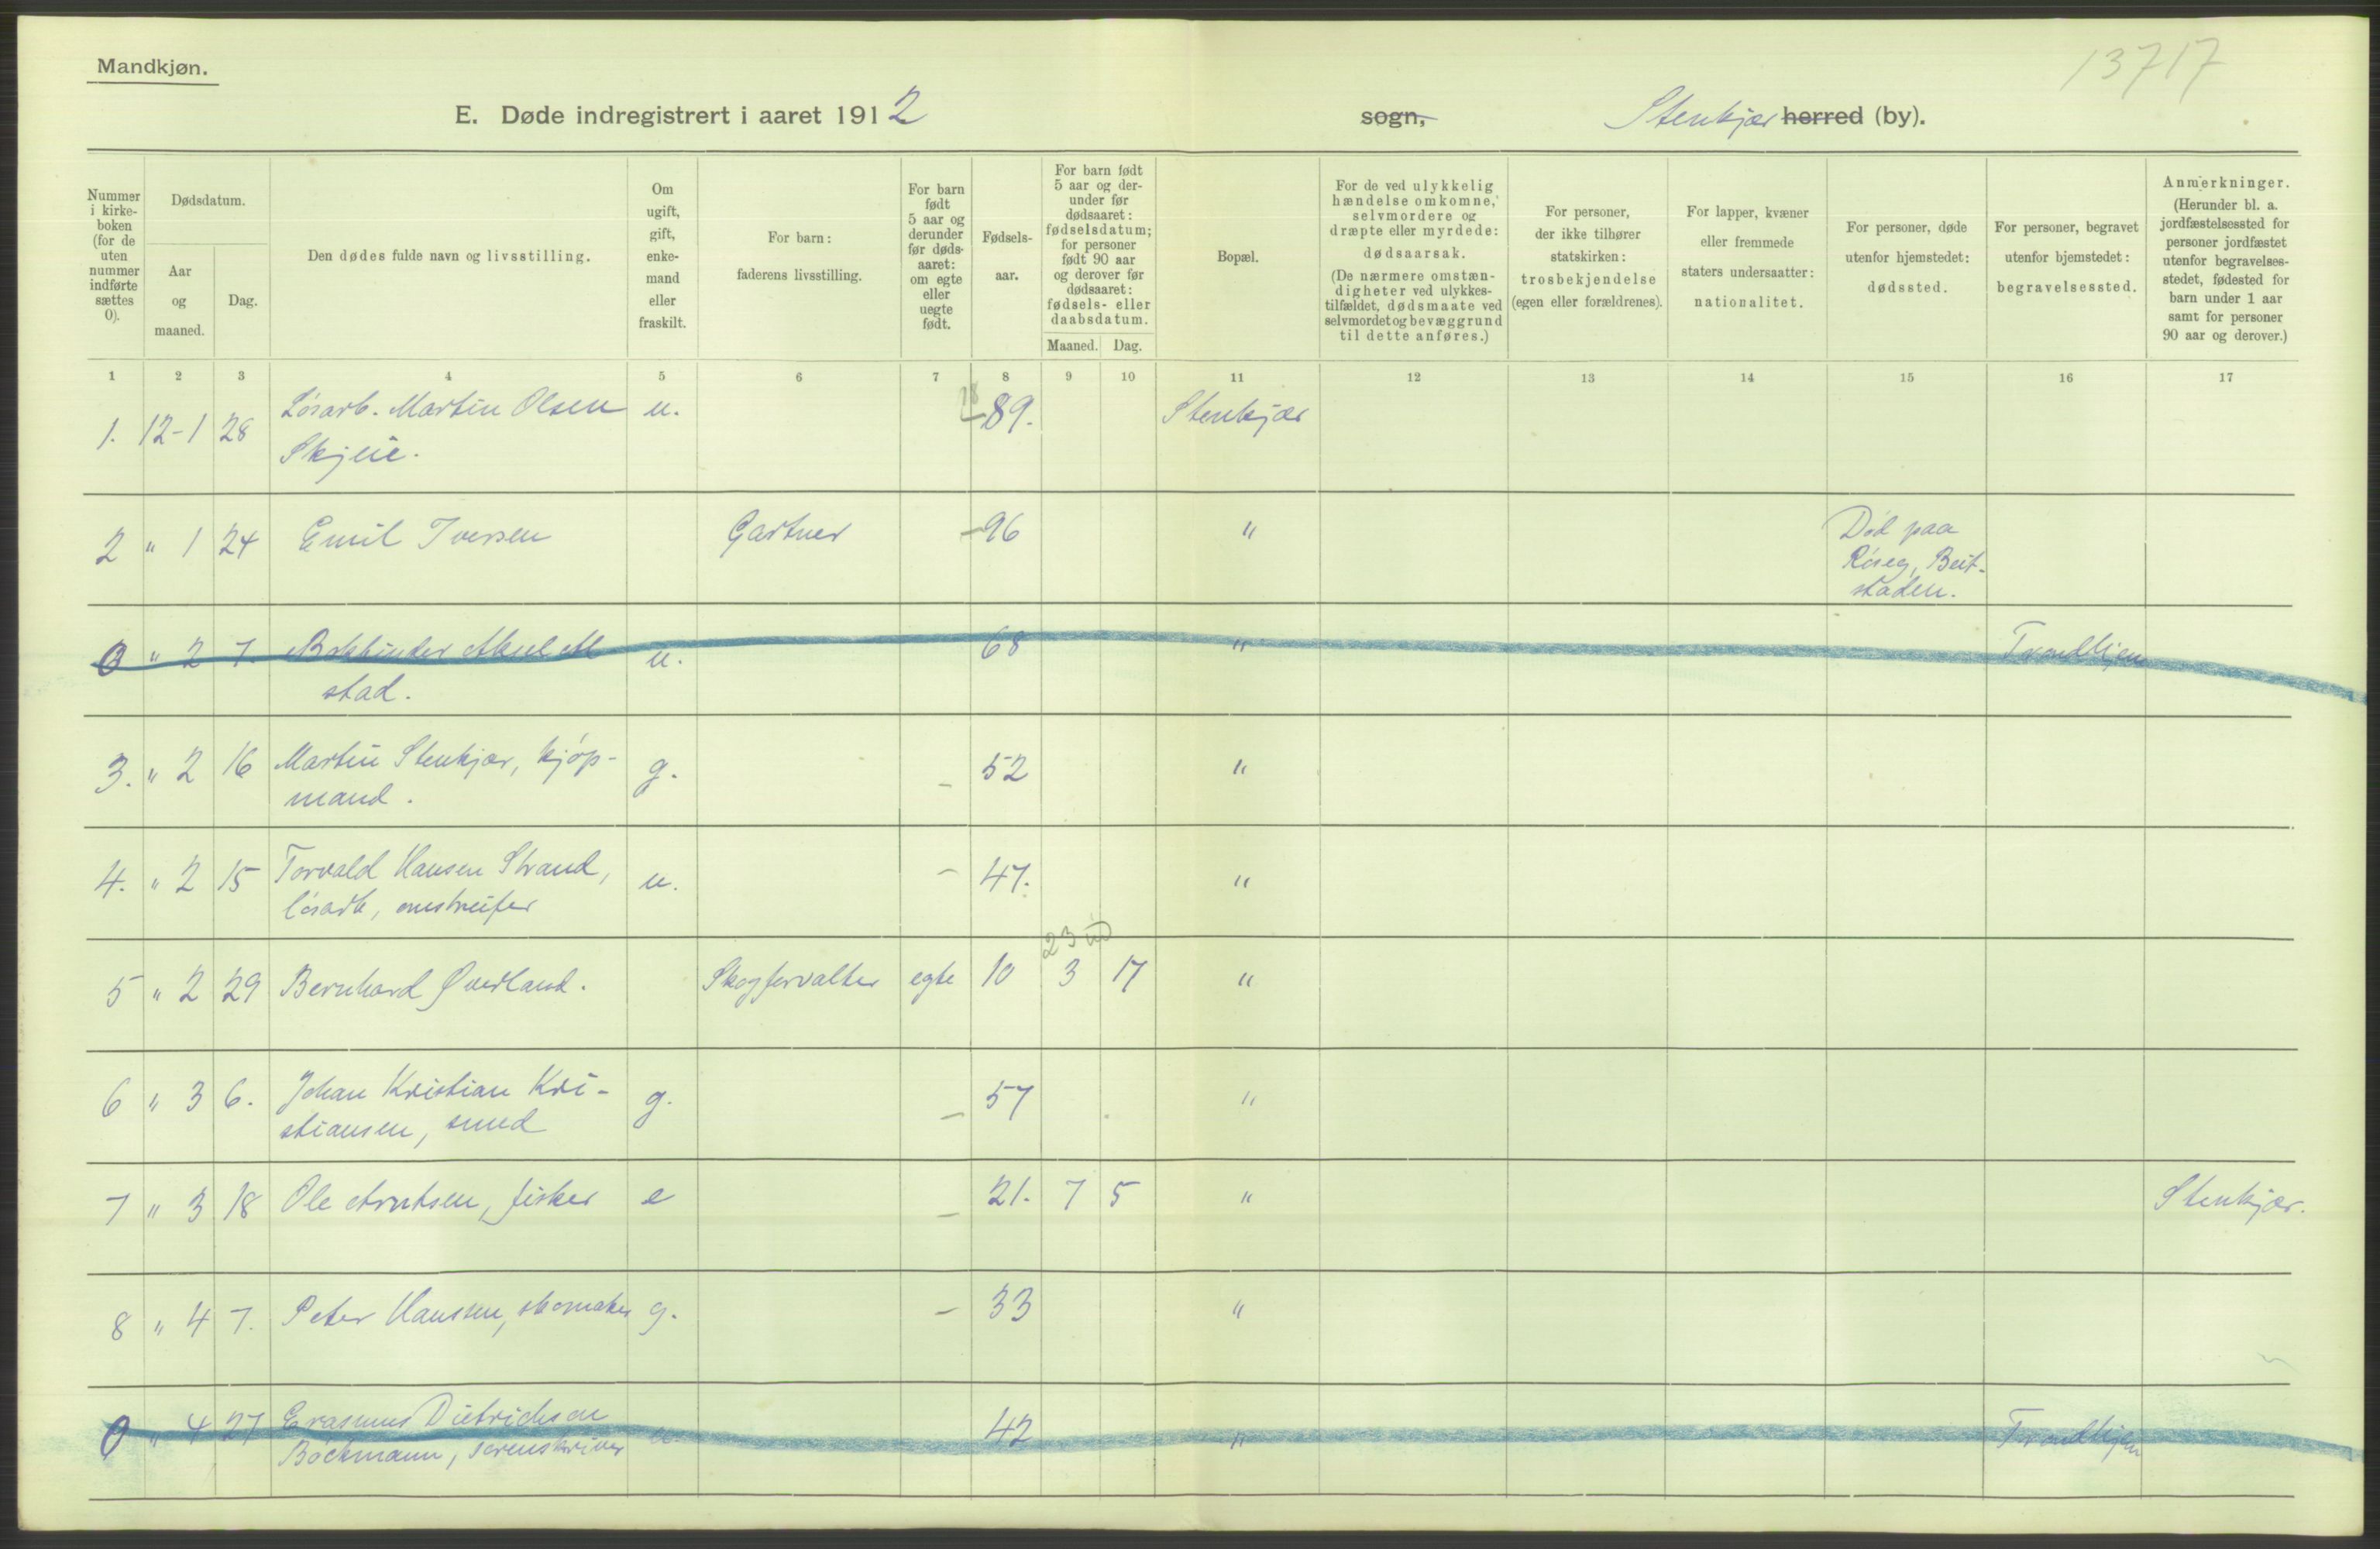 Mandkjøn.
13717
E. Døde indregistrert i aaret 1912 sogn, Stenkjær herred (by).
Nummer i kirke-boken (for de uten nummer indførte sættes 0).
Dødsdatum.
Aar og maaned.
Dag.
Den dødes fulde navn og livsstilling.
Om ugift, gift, enke-mand eller fraskilt.
For barn: faderens livsstilling.
For barn født 5 aar og derunder før døds-aaret: om egte eller uegte født.
Fødsels-aar.
For barn født 5 aar og der-under før dødsaaret: fødselsdatum; for personer født 90 aar og derover før dødsaaret: fødsels- eller daabsdatum.
Maaned. Dag.
Bopæl.
For de ved ulykkelig hændelse omkomne, selvmordere og dræpte eller myrdede: dødsaarsak. (De nærmere omstæn-digheter ved ulykkes-tilfældet, dødsmaate ved selvmordet og bevæggrund til dette anføres.)
For personer, der ikke tilhører statskirken: trosbekjendelse (egen eller forældrenes).
For lapper, kvæner eller fremmede staters undersaatter: nationalitet.
For personer, døde utenfor hjemstedet: dødssted.
For personer, begravet utenfor hjemstedet: begravelsessted.
Anmerkninger. (Herunder bl. a. jordfæstelsessted for personer jordfæstet utenfor begravelses-stedet, fødested for barn under 1 aar samt for personer 90 aar og derover.)
1 2 3 4 5 6 7 8 9 10 11 12 13 14 15 16 17
1. 12-1 28 Løsarb. Martin Olsen u. 89. Stenkjær
Skjeie.
2 " 1 24 Emil Iversen Gartner 96 " Død paa
Røseg, Beit-
staden.
0 " 2 7. Bokbinder Aksel Al u. 68 " Trondhjem
stad.
3. " 2 16 Martin Stenkjær, kjøp- g. 52 "
mand.
4. " 2 15 Torvald Hansen Strand, u. 47. "
løsarb, omstreifer
23
5 " 2 29 Bernhard Øverland. Skogforvalter egte 10 3 17 "
6 " 3 6. Johan Kristian Kri- g. 57 "
stiansen, smed
7 " 3 18 Ole Arntsen, fisker e 21. 7 5 " Stenkjær.
8 " 4 7. Peter Hanssen, skomaker g. 33 "
0 " 4 27 Erasmus Dietrichson u. 42 " Trondhjem
Bøckmann, sorenskriver